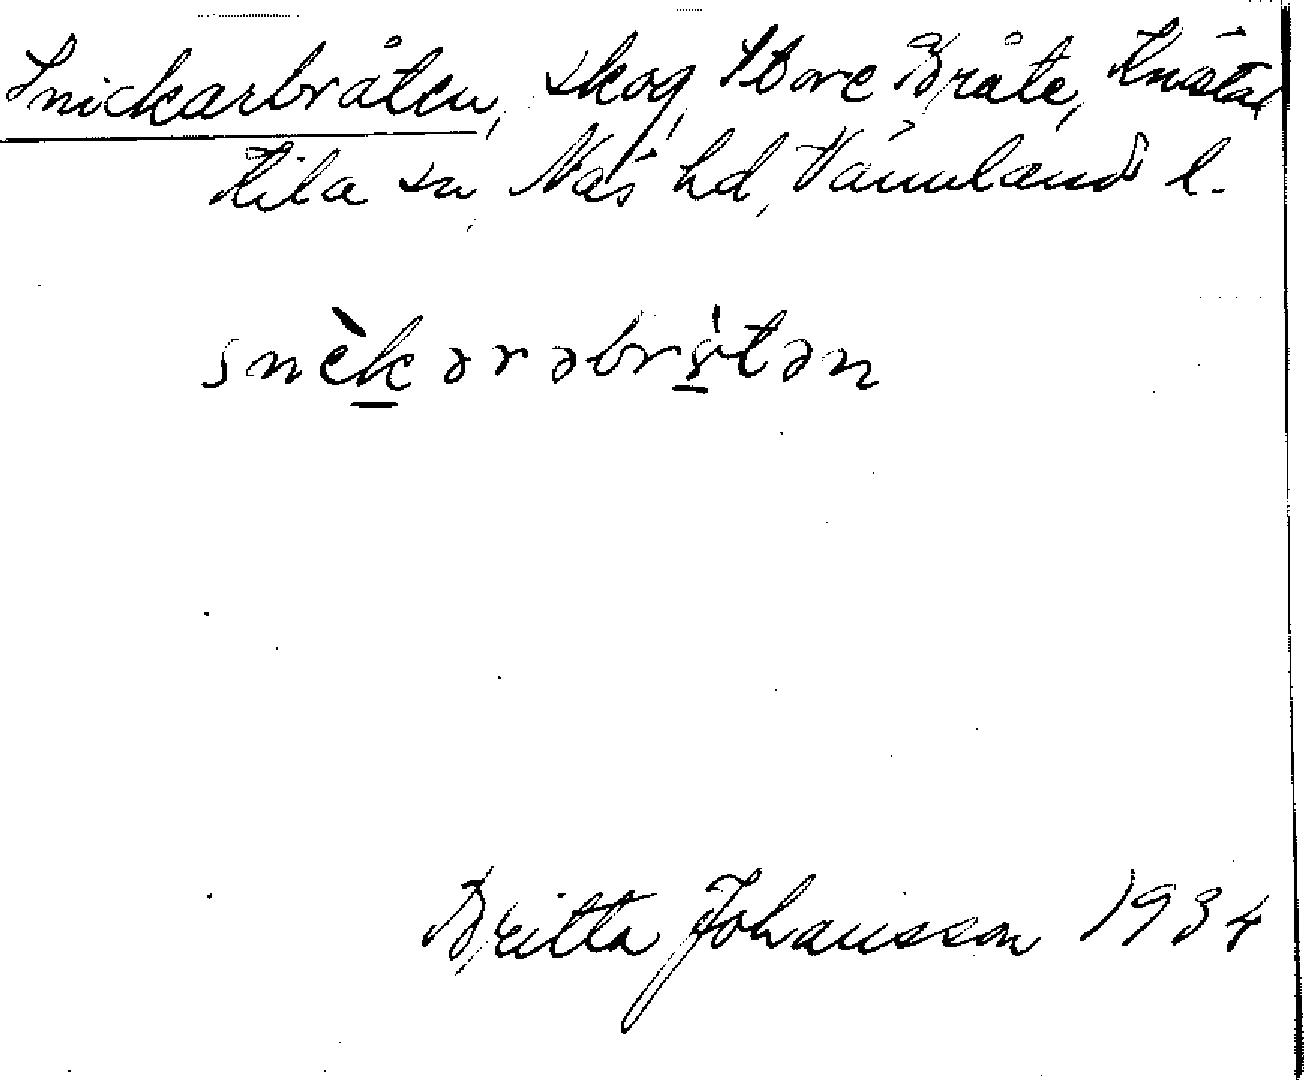 Snickarbråten, skog, Store Bråte, Knöstad
Kila sn, Näs hd, Värmlands l.
snèkərəbrɷ̀tən
Britta Johansson 1934